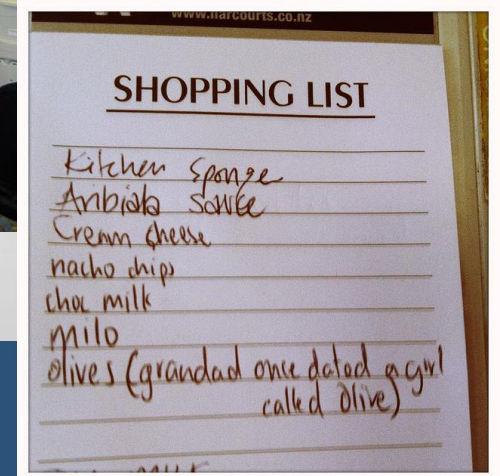 www.harcourts.co.nz
SHOPPING LIST
Kitchen Sponge
Aribiata Sauce
Cream cheese
nacho chips
choc milk
milo
olives (grandad once dated a girl
called Olive)